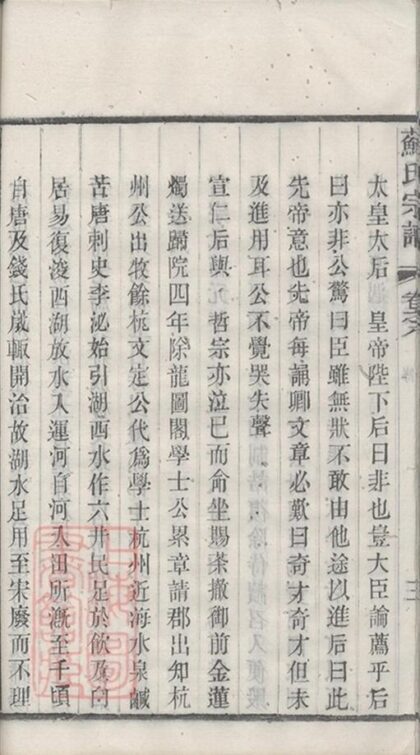 太皇太后遇 皇帝陛下后曰非也豈大臣論薦乎后
曰亦非公驚曰臣雖無狀不敢由他途以進后曰此
先帝意也先帝每誦卿文章必歎曰奇才奇才但未
及進用耳公不覺哭失聲
宣仁后與 哲宗亦泣已而命坐賜茶撤御前金蓮
燭送歸院四年除龍圖閣學士公累章請郡出知杭
州公出牧餘杭文定公代為學士杭州近海水泉鹹
苦唐刺史李泌始引湖西水作六井民足於飲及白
居易復浚西湖放水入運河自河入田所漑至千頃
自唐及錢氏嵗輒開治故湖水足用至宋廢而不理
蘇氏宗譜